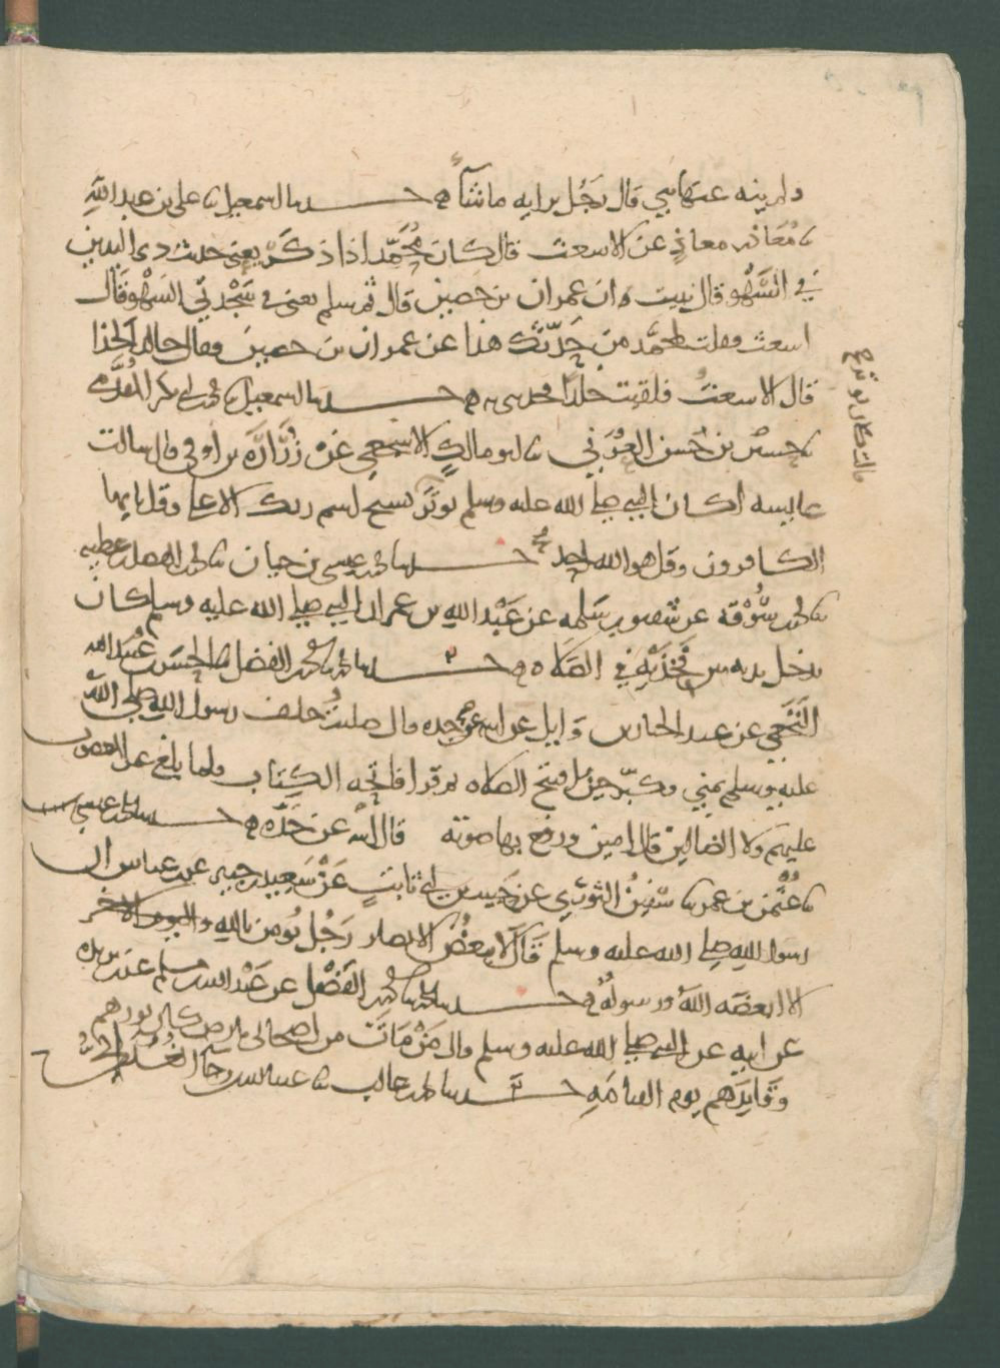 عنها يعني قال رجل برايه ما شاء ه حـــدثنا اسمعيل نا علي بن عبد الله
نا معاذ بن معاذ عن الاشعث قال كان محمد اذا ذكر يعني حديث ذي اليدين
في السهو قال نبئت ان عمران بن حصين قال ثم سلم يعني في سجدتي السهو قال
اشعث فقلت لمحمد من حدثك هذا عن عمران بن حصين فقال خالد الحذا
قال الاشعث فلقيت خالدا ه حـــدثنا اسمعيل نا محمد بن ابي بكر المقدمي
نا حسين بن حسن العرني نا ابو مالك الاشجعي عن زرارة بن اوفى قال سالت
عايشه اكان النبي صلى الله عليه وسلم يوتر بسبح اسم ربك الاعلى وقل يا يها
الكافرون وقل هو الله احد حـــدثنا محمد بن عيسى بن حيان نا محمد بن الفضل بن عطيه
نا محمد بن سوقه عن شقيق بن سلمه عن عبد الله بن عمر ان النبي صلى الله عليه وسلم كان
يدخل يديه بين فخذيه في الصلاه ه حـــدثنا محمد نا محمد بن الفضل نا الحسن بن عبيد الله
النخعي عن عبد الجبار بن وايل عن ابيه عن جده قال صليت خلف رسول الله صلى الله
عليه وسلم بمنى وكبر حين افتتح الصلاه ثم قرا فاتحه الكتاب ولما بلغ غير المغضوب
عليهم ولا الضالين قال امين ورفع بها صوته قال الشيخ عن جده ه حـــدثنا محمد بن عيسى
نا عثمن بن عمر نا سفين الثوري عن حبيب بن ابي ثابت عن سعيد بن جبير عن ابن عباس ان
رسول الله صلى الله عليه وسلم قال لا يبغض الانصار رجل يومن بالله واليوم الاخر
الا ابغضه الله ورسوله ه حـــدثنا محمد نا محمد بن الفضل عن عبد الله بن مسلم عن ابن بريده
عن ابيه عن النبي صلى الله عليه وسلم قال من مات من اصحابي بارض كان نورهم
وقايدهم يوم القيامه حـــدثنا محمد بن غالب نا عبد الله بن رجا